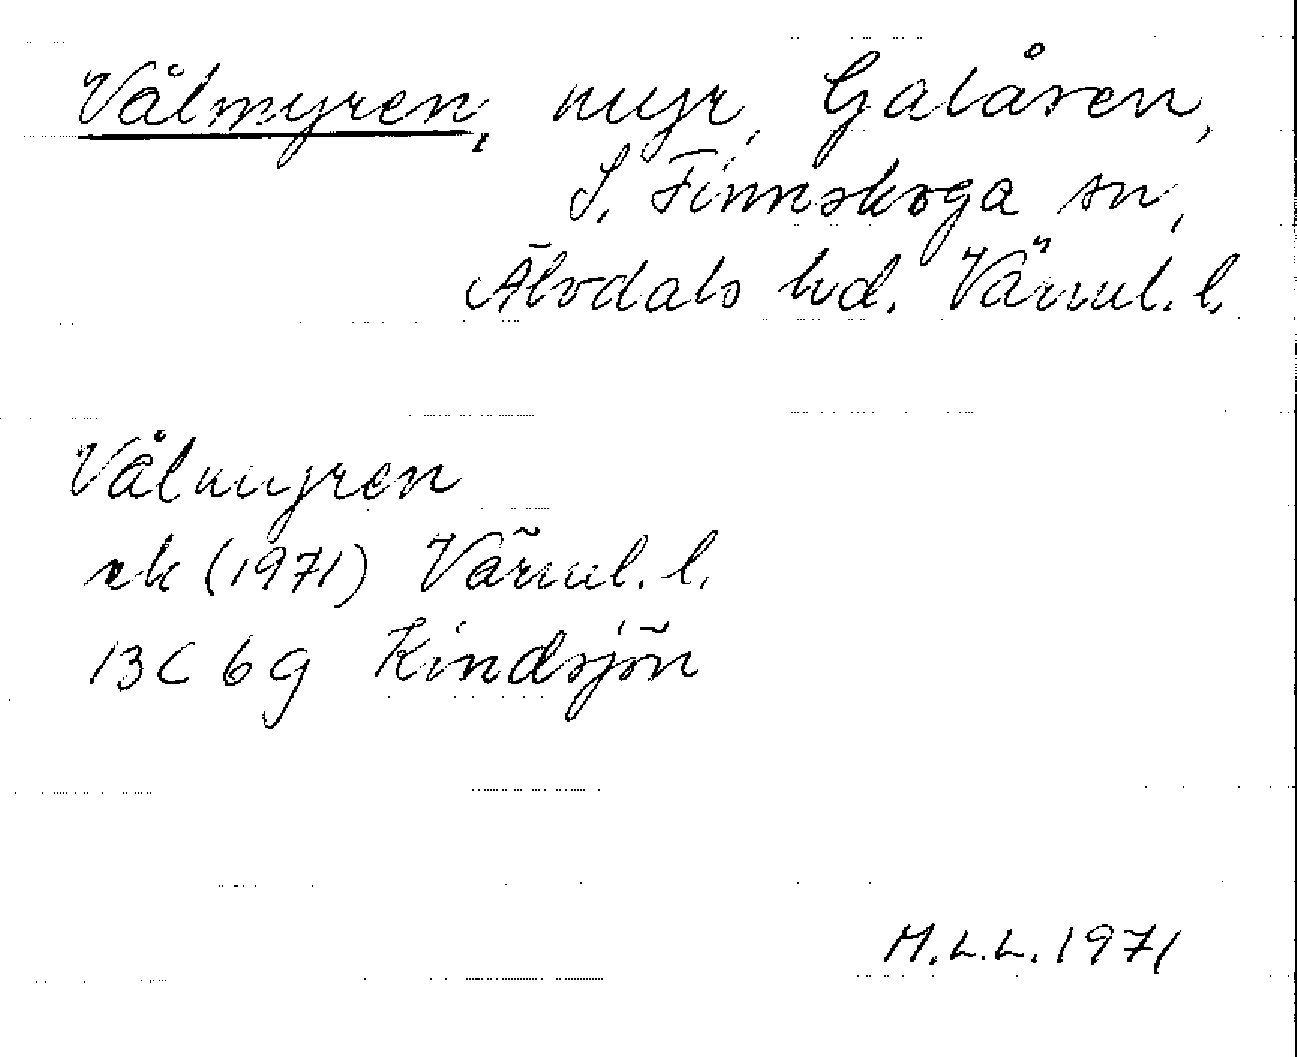 Vålmyren, myr, Galåsen,
S. Finnskoga sn,
Älvdals hd. Värml. l.
Vålmyren
ek (1971) Värml. l.
13C 6g Kindsjön
M.L.L. 1971